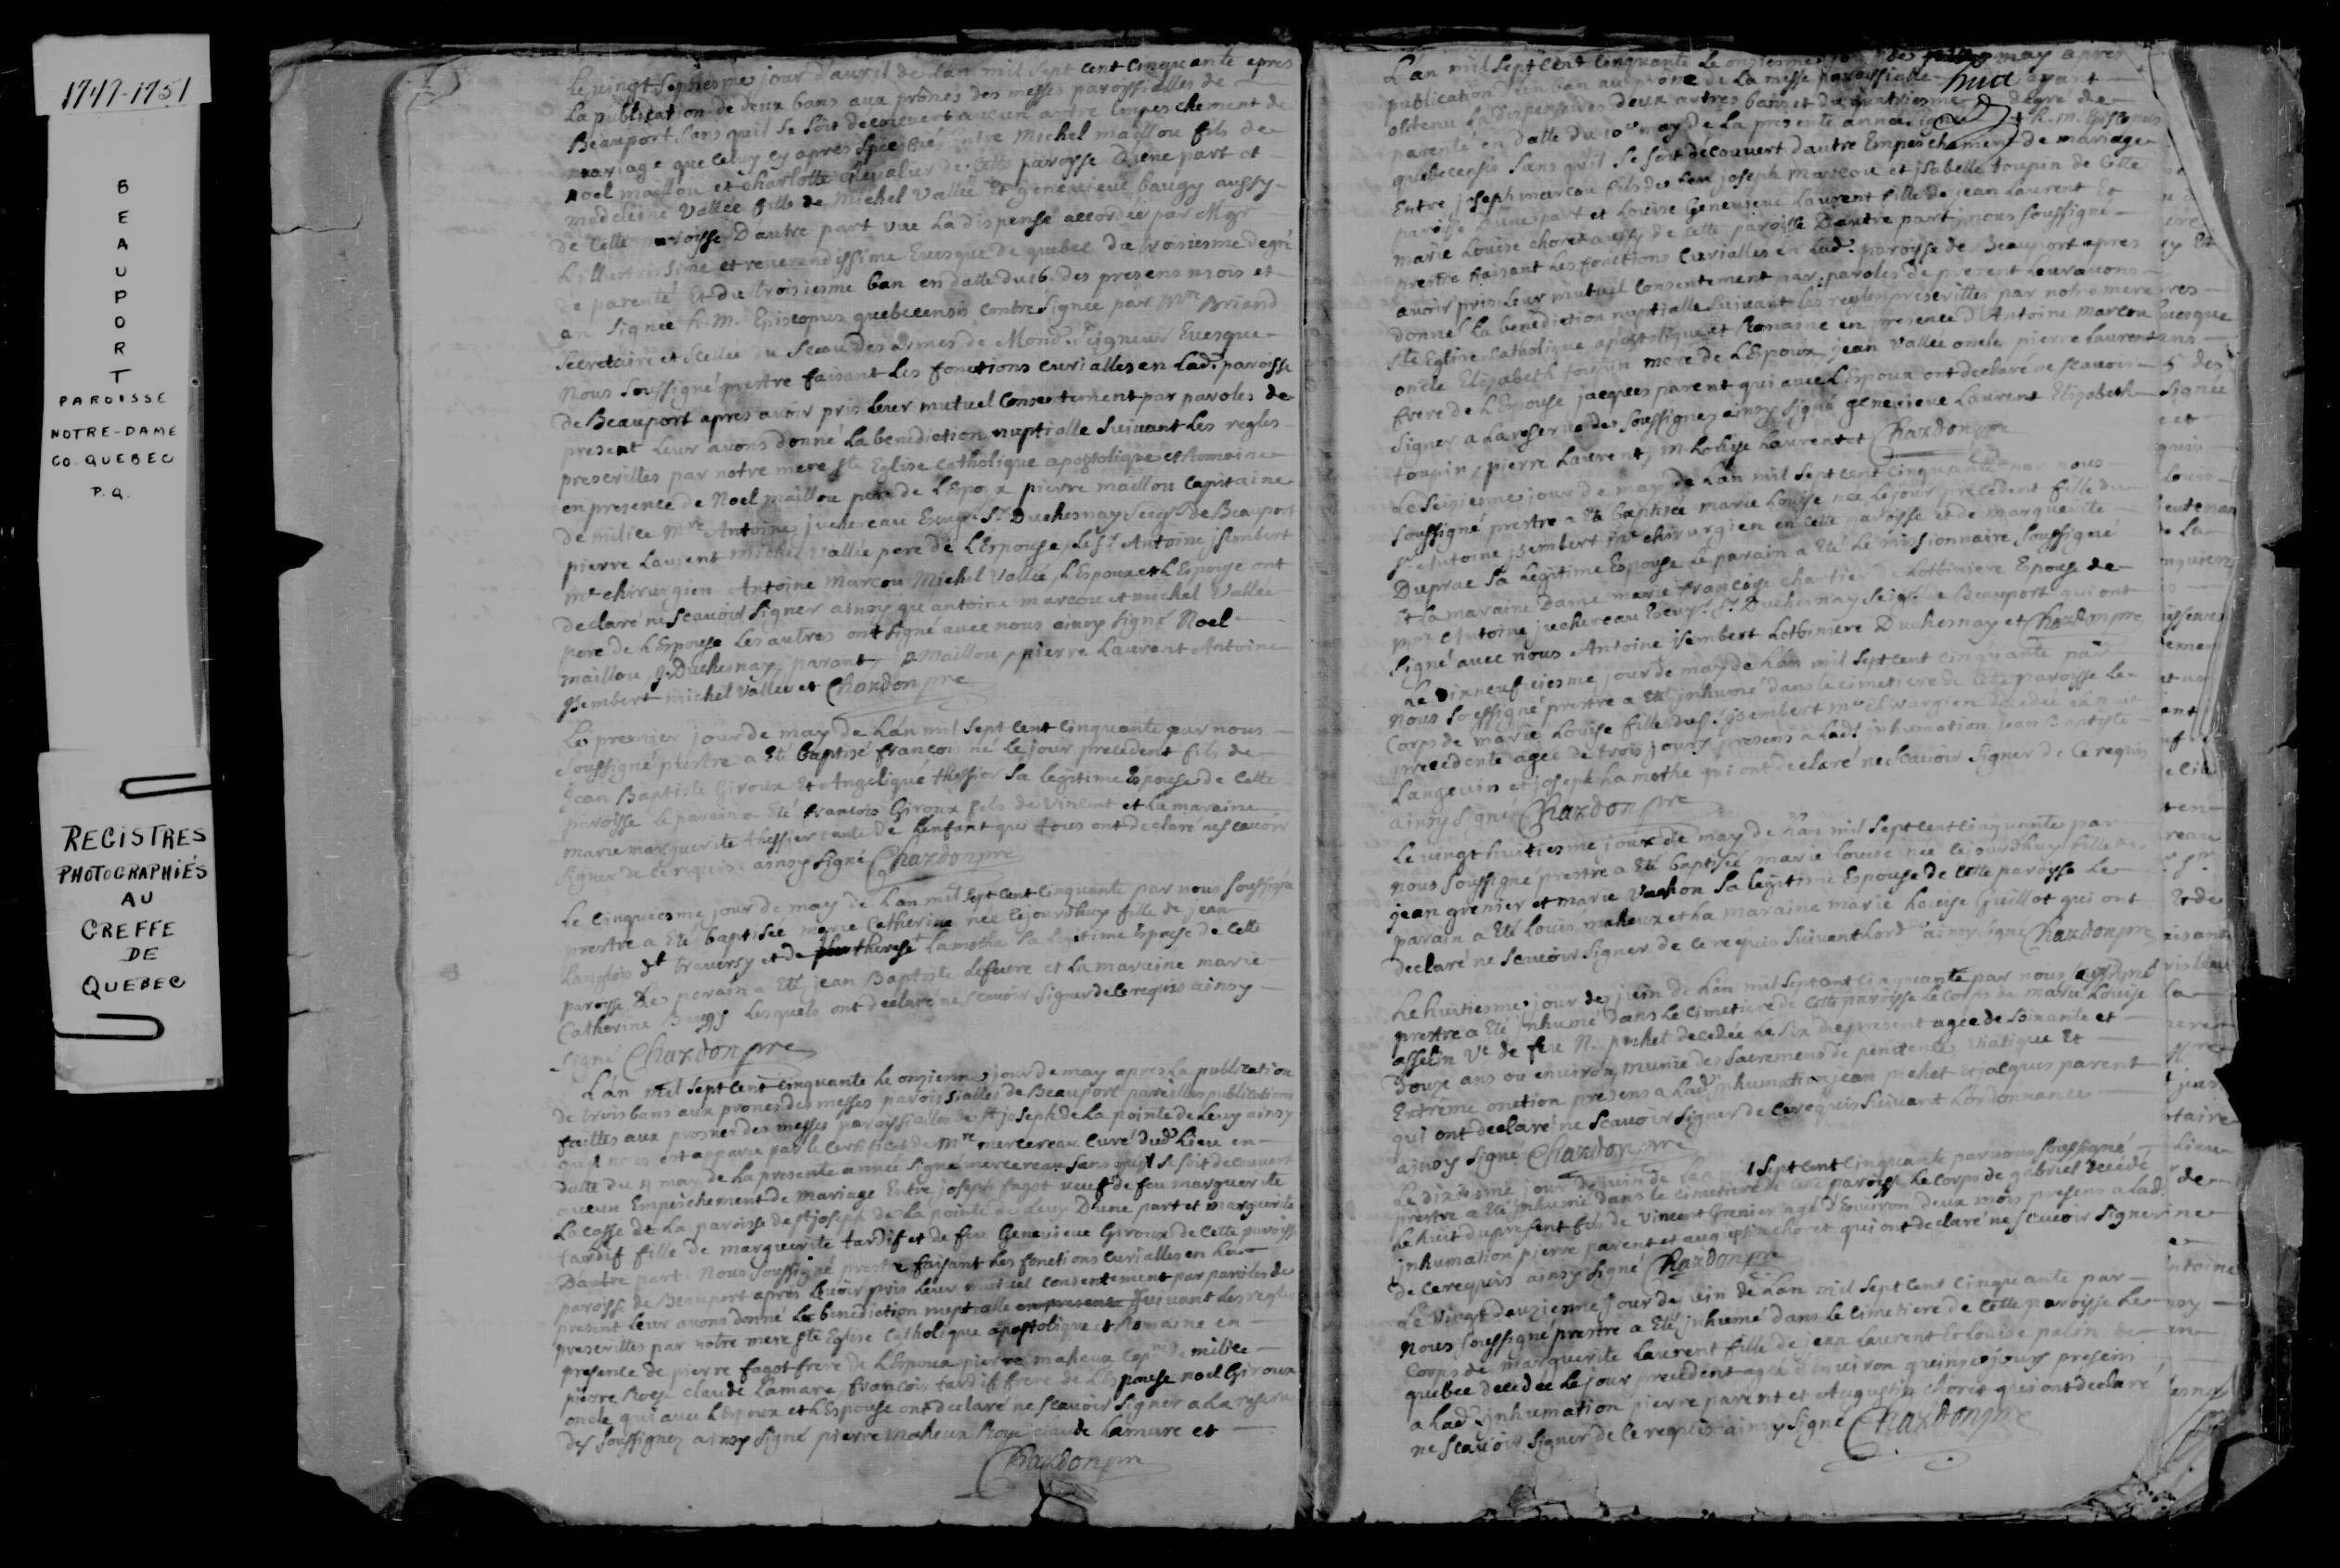 1747-1751
BEAUPORT
PAROISSE
NOTRE-DAME
CO. QUEBEC
P.Q.
REGISTRES
PHOTOGRAPHIÉS
AU
GREFFE
DE
QUEBEC
Le vingt jour d'auril de L'an mil sept cent Cinquante apres
La publication de deux bans aux prônes des messes paroissialles de
Beauport sans quil se soit decouvert aucun autre Empeschement de
mariage que Celuy cy apres specifié entre Michel maillou fils de
Noel maillou et Charlotte chevalier de Cette paroisse D'une part et
madeleine Vallée fille de Michel Vallée Et genevieve baugy aussy
de Cette paroisse D'autre part vue La dispense accordée par Mgr
L'illustrissime et reverendissime Evesque de quebec du troisiesme degré
de parenté Et du troisiesme ban en datte du 16. des presens mois et
an Signée h. M. Episcopus quebecensis contre Signée par Mre Briand
Secretaire et Scellée du Sceau des armes de Mond. Seigneur Evesque
Nous Soussigné prestre faisant Les fonctions curialles en Lad. paroisse
de Beauport apres avoir pris Leur mutuel Consentement par paroles de
present Leur avons donné La benediction nuptialle Suivant Les regles
prescrittes par notre mere Ste Eglise Catholique apostolique et Romaine
en presence de Noel maillou pere de L'Epoux pierre maillou Capitaine
De milice Mre Antoine juchereau Escuyr Sr Duchesnay Seigr de Beauport
pierre Laurent michel Vallée pere de L'Epouse, Le Sr Antoine jsembert
Me chirurgien Antoine Marcou Michel Vallée, L'Epoux et L'Epouse ont
declaré ne Scauoir Signer ainsy que antoine marcou et michel Vallée
pere de L'Epouse Les autres ont Signé avec nous ainsy signé Noel
maillou, J. Duchesnay, parant, p Maillou, pierre Laurent Antoine
jsembert michel Vallée et Chardon pre
Le premier jour de may de L'an mil Sept cent Cinquante par nous
Soussigné prestre a Eté baptisé francois né Le jour precedent fils de
jean Baptiste Giroux Et Angelique thessier Sa legitime Epouse de Cette
paroisse Le parain a Eté francois Giroux fils de Vincent et La maraine
marie marguerite thessier tante de L'enfant qui tous ont declaré ne Scauoir
Signer de Ce requis. ainsy Signé Chardon pre
Le Cinquiesme jour de may de L'an mil Sept Cent Cinquante par nous Soussigné
prestre a Eté baptisée marie Catherine née Cejourdhuy fille de jean
Langlois dt traversy et de therese Lamothe Sa legitime Epouse de Cette
paroisse Le parain a Eté jean Baptiste Lefevre et La maraine marie
Catherine Baugy Lesquels ont declaré ne Scauoir Signer de Ce requis ainsy
signé Chardon pre
L'an mil Sept Cent Cinquante Le onzieme jour de may apres La publication
de trois bans aux prones des messes paroissialles de Beauport pareilles publications
faittes aux prosnes des messes paroissialles de St joseph de La pointe de Levy ainsy
quil nous est apparu par le Certificat de Mre mercereau Curé dud. Lieu en
datte du 4 may de La presente année Signé mercereau Sans quil Se soit decouvert
aucun Empeschement de Mariage Entre joseph fagot veuf de feu marguerite
La casse de La paroisse de St joseph de La pointe de Levy D'une part et marguerite
tardif fille de marguerite tardif et de feu Genevieve Giroux de Cette paroisse
D'autre part. Nous Soussigné prestre faisant Les fonctions Curialles en Lad
paroisse de Beauport apres avoir pris Leur mutuel Consentement par paroles de
present Leur avons donné La benediction nuptialle en presence Suivant Les regles
prescrittes par notre mere Ste Eglise Catholique apostolique et Romaine en
presence de pierre fagot frere de L'Epoux pierre maheux Capne de milice
pierre Roye claude Lamare, francois tardif frere de L'Epouse noel Giroux
oncle qui avec L'Epoux et L'Epouse ont declaré ne Scauoir Signer a La reserve
des Soussignez ainsy Signé pierre maheux Roye claude Lamare et
Chardon pre
L'an mil Sept Cent Cinquante Le onzieme jour de may apres
publication d'un ban au prone de La messe paroissialle huit ayant
obtenu La dispense des deux autres bans et du quatriesme degré de
parenté en datte du 10e may de La presente année signée h. m. Episcopus
quebecensis Sans quil Se Soit decouvert d'autre Empeschement de mariage
Entre joseph marcou fils de feu joseph Marcou et jsabelle toupin de Cette
paroisse D'une part et Louise Genevieve Laurent fille de jean Laurent Et
marie Louise choret aussy de Cette paroisse D'autre part, nous Soussigné
prestre faisant Les fonctions Curialles en Lad. paroisse de Beauport apres
avoir pris Leur mutuel Consentement par paroles de present Leur avons
donné La benediction nuptialle Suivant Les regles prescrittes par notre mere
Ste Eglise Catholique apostolique et Romaine en presence d'Antoine Marcou
oncle Elizabeth toupin mere de L'Epoux, jean Vallée oncle pierre Laurent
frere de L'Epouse jacques parent qui avec L'Epoux ont declaré ne Scauoir
Signer a La reserve des Soussignés ainsy Signé genevieve Laurent Elizabeth
toupin, pierre Laurent, M Louise Laurent et Chardon pre
Le Seiziesme jour de may de L'an mil Sept cent Cinquante par nous
Soussigné prestre a Eté baptisée marie Louise née Le jour precedent fille du
Sr Antoine jsembert Me chirurgien en Cette paroisse et de marguerite
Duprac Sa Legitime Epouse Le parain a Eté Le missionnaire Soussigné
Et La maraine Dame marie francoise chartier de Lotbiniere Epouse de
Mre Antoine juchereau Escuyr Sr Duchesnay Seigr de Beauport qui ont
signé avec nous Antoine jsembert Lotbiniere Duchesnay et Chardon pre
Le Dixneufviesme jour de may de L'an mil Sept cent Cinquante par
Nous Soussigné prestre a Eté jnhumé dans le Cimetiere de Cette paroisse Le
Corps de marie Louise fille du Sr jsembert Me chirurgien decedée La nuit
precedente agée de trois jours presens a Lad. inhumation Jean Baptiste
Langevin et joseph La mothe qui ont declaré ne Scauoir Signer de Ce requis
ainsy Signé Chardon pre
Le vingt huitiesme jour de may de L'an mil Sept Cent Cinquante par
nous Soussigné prestre a Eté baptisée marie Louise née Cejourdhuy fille de
jean grenier et marie Vachon Sa legitime Epouse de Cette paroisse Le
parain a Eté Louis maheux et La maraine marie Louise Guillot qui ont
declaré ne Scauoir Signer de Ce requis Suivant Lord. ainsy signé Chardon pre
Le huitiesme jour de juin de L'an mil Sept Cent Cinquante par nous Soussigné
prestre a Eté jnhumé dans Le Cimetiere de Cette paroisse Le Corps de marie Louise
asselin Ve de feu N. decedée Le Six du present agée de Soixante et
Douze ans ou environ, munie des Sacremens de penitence, Viatique Et
Extrême onction presens a Lad. jnhumation jean et jacques parent
qui ont declaré ne Scauoir Signer de Ce requis Suivant L'ordonnance
ainsy Signé Chardon pre
Le dixiesme jour de juin de L'an mil Sept cent Cinquante par nous Soussigné
prestre a Eté jnhumé dans Le Cimetiere de Cette paroisse Le Corps de gabriel decedé
Le huit du present fils de Vincent Grenier agé D'Environ deux mois presens a Lad.
jnhumation pierre parent et augustin choret qui ont declaré ne Scauoir Signer
de Ce requis ainsy signé Chardon pre
Le Vingt Deuxieme jour de juin de L'an mil Sept Cent Cinquante par
Nous Soussigné prestre a Eté jnhumé dans Le Cimetiere de Cette paroisse Le
Corps de marguerite Laurent fille de jean Laurent Et Louise palin de
quebec decedée Le jour precedent agée d'environ quinze jours presens
a Lad. jnhumation pierre parent et Augustin choret qui ont declaré
ne Scauoir Signer de Ce requis ainsy Signé Chardon pre